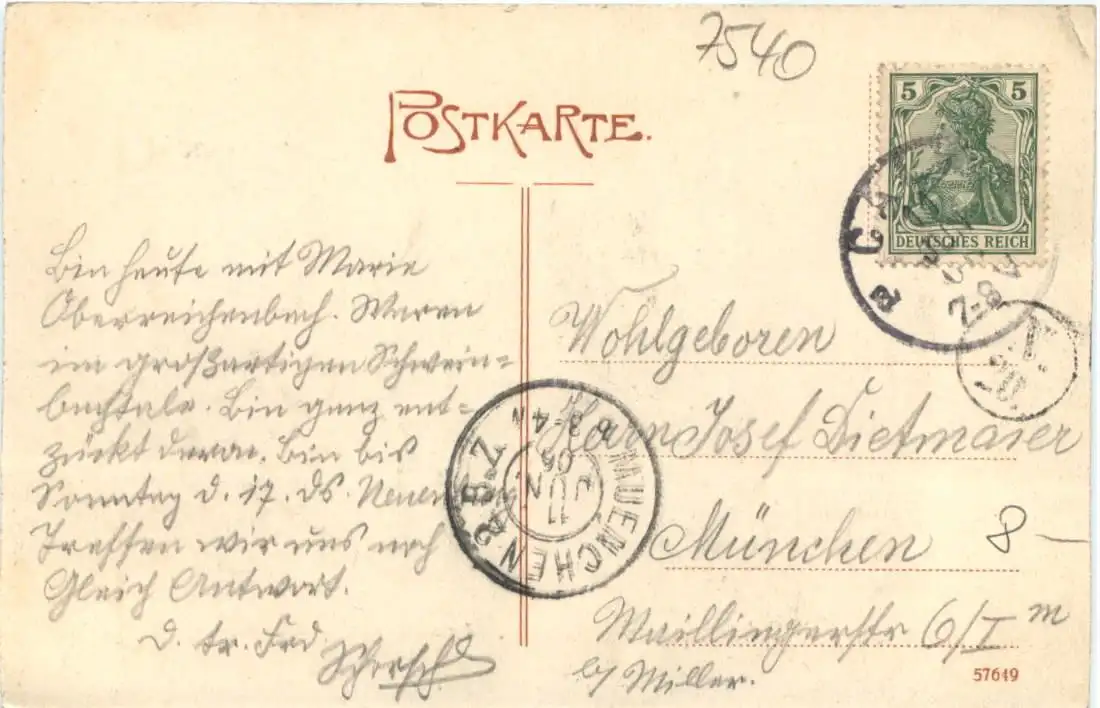 7540
POSTKARTE.
5 5
DEUTSCHES REICH
7-8
Bin heute mit Marie
Oberreichenbach. Waren
im großartigen Schwein-
bachtale. Bin ganz ent-
zückt davon. Bin bis
Sonntag d. 17. ds.
Treffen wir uns noch
Gleich Antwort.
d. tr. Frd
Schorsch
Wohlgeboren
Herrn Josef Dietmaier
München 8
Maillingerstr 6/I m
b/ Miller.
MÜNCHEN 2 B.Z.
11
JUN
06
3-4 N
57649